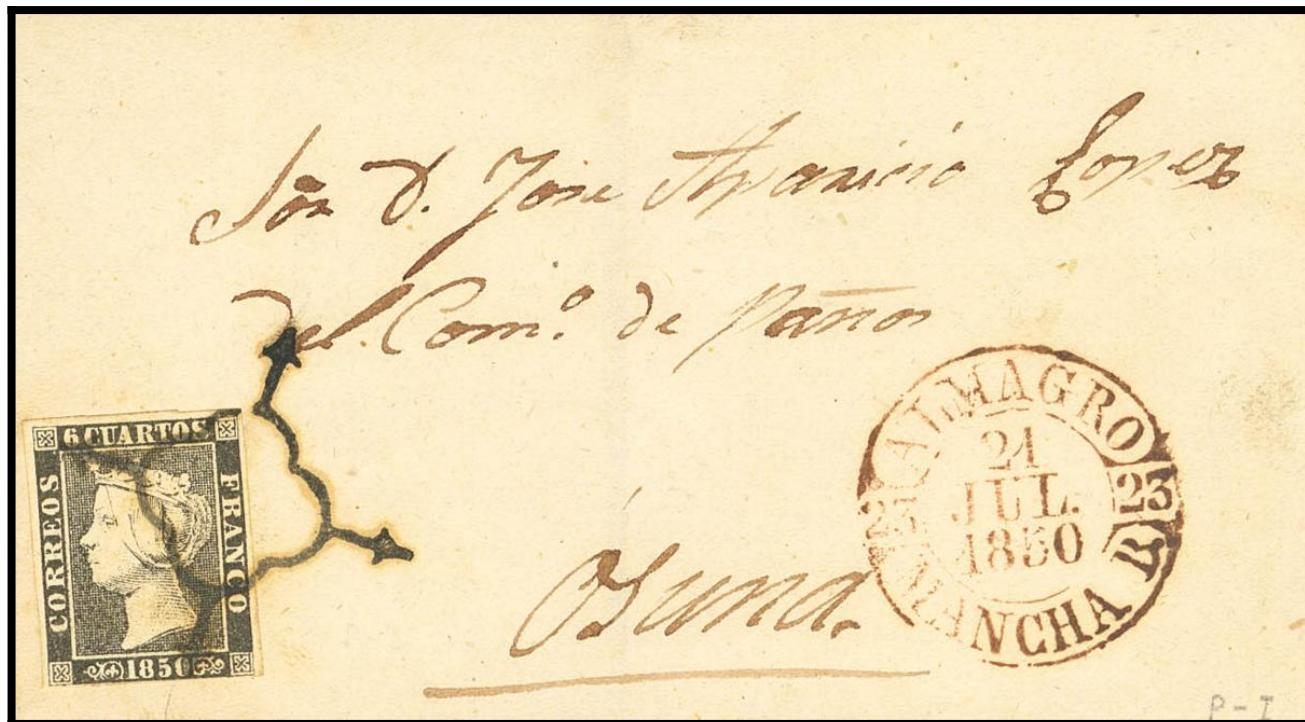 Sor D. Jose Aparicio Lopez
del Com.º de Paños
Osuna.
6 CUARTOS
CORREOS
FRANCO
1850
ALMAGRO
21
JUL.
1850
23
23
MANCHA B
P-I